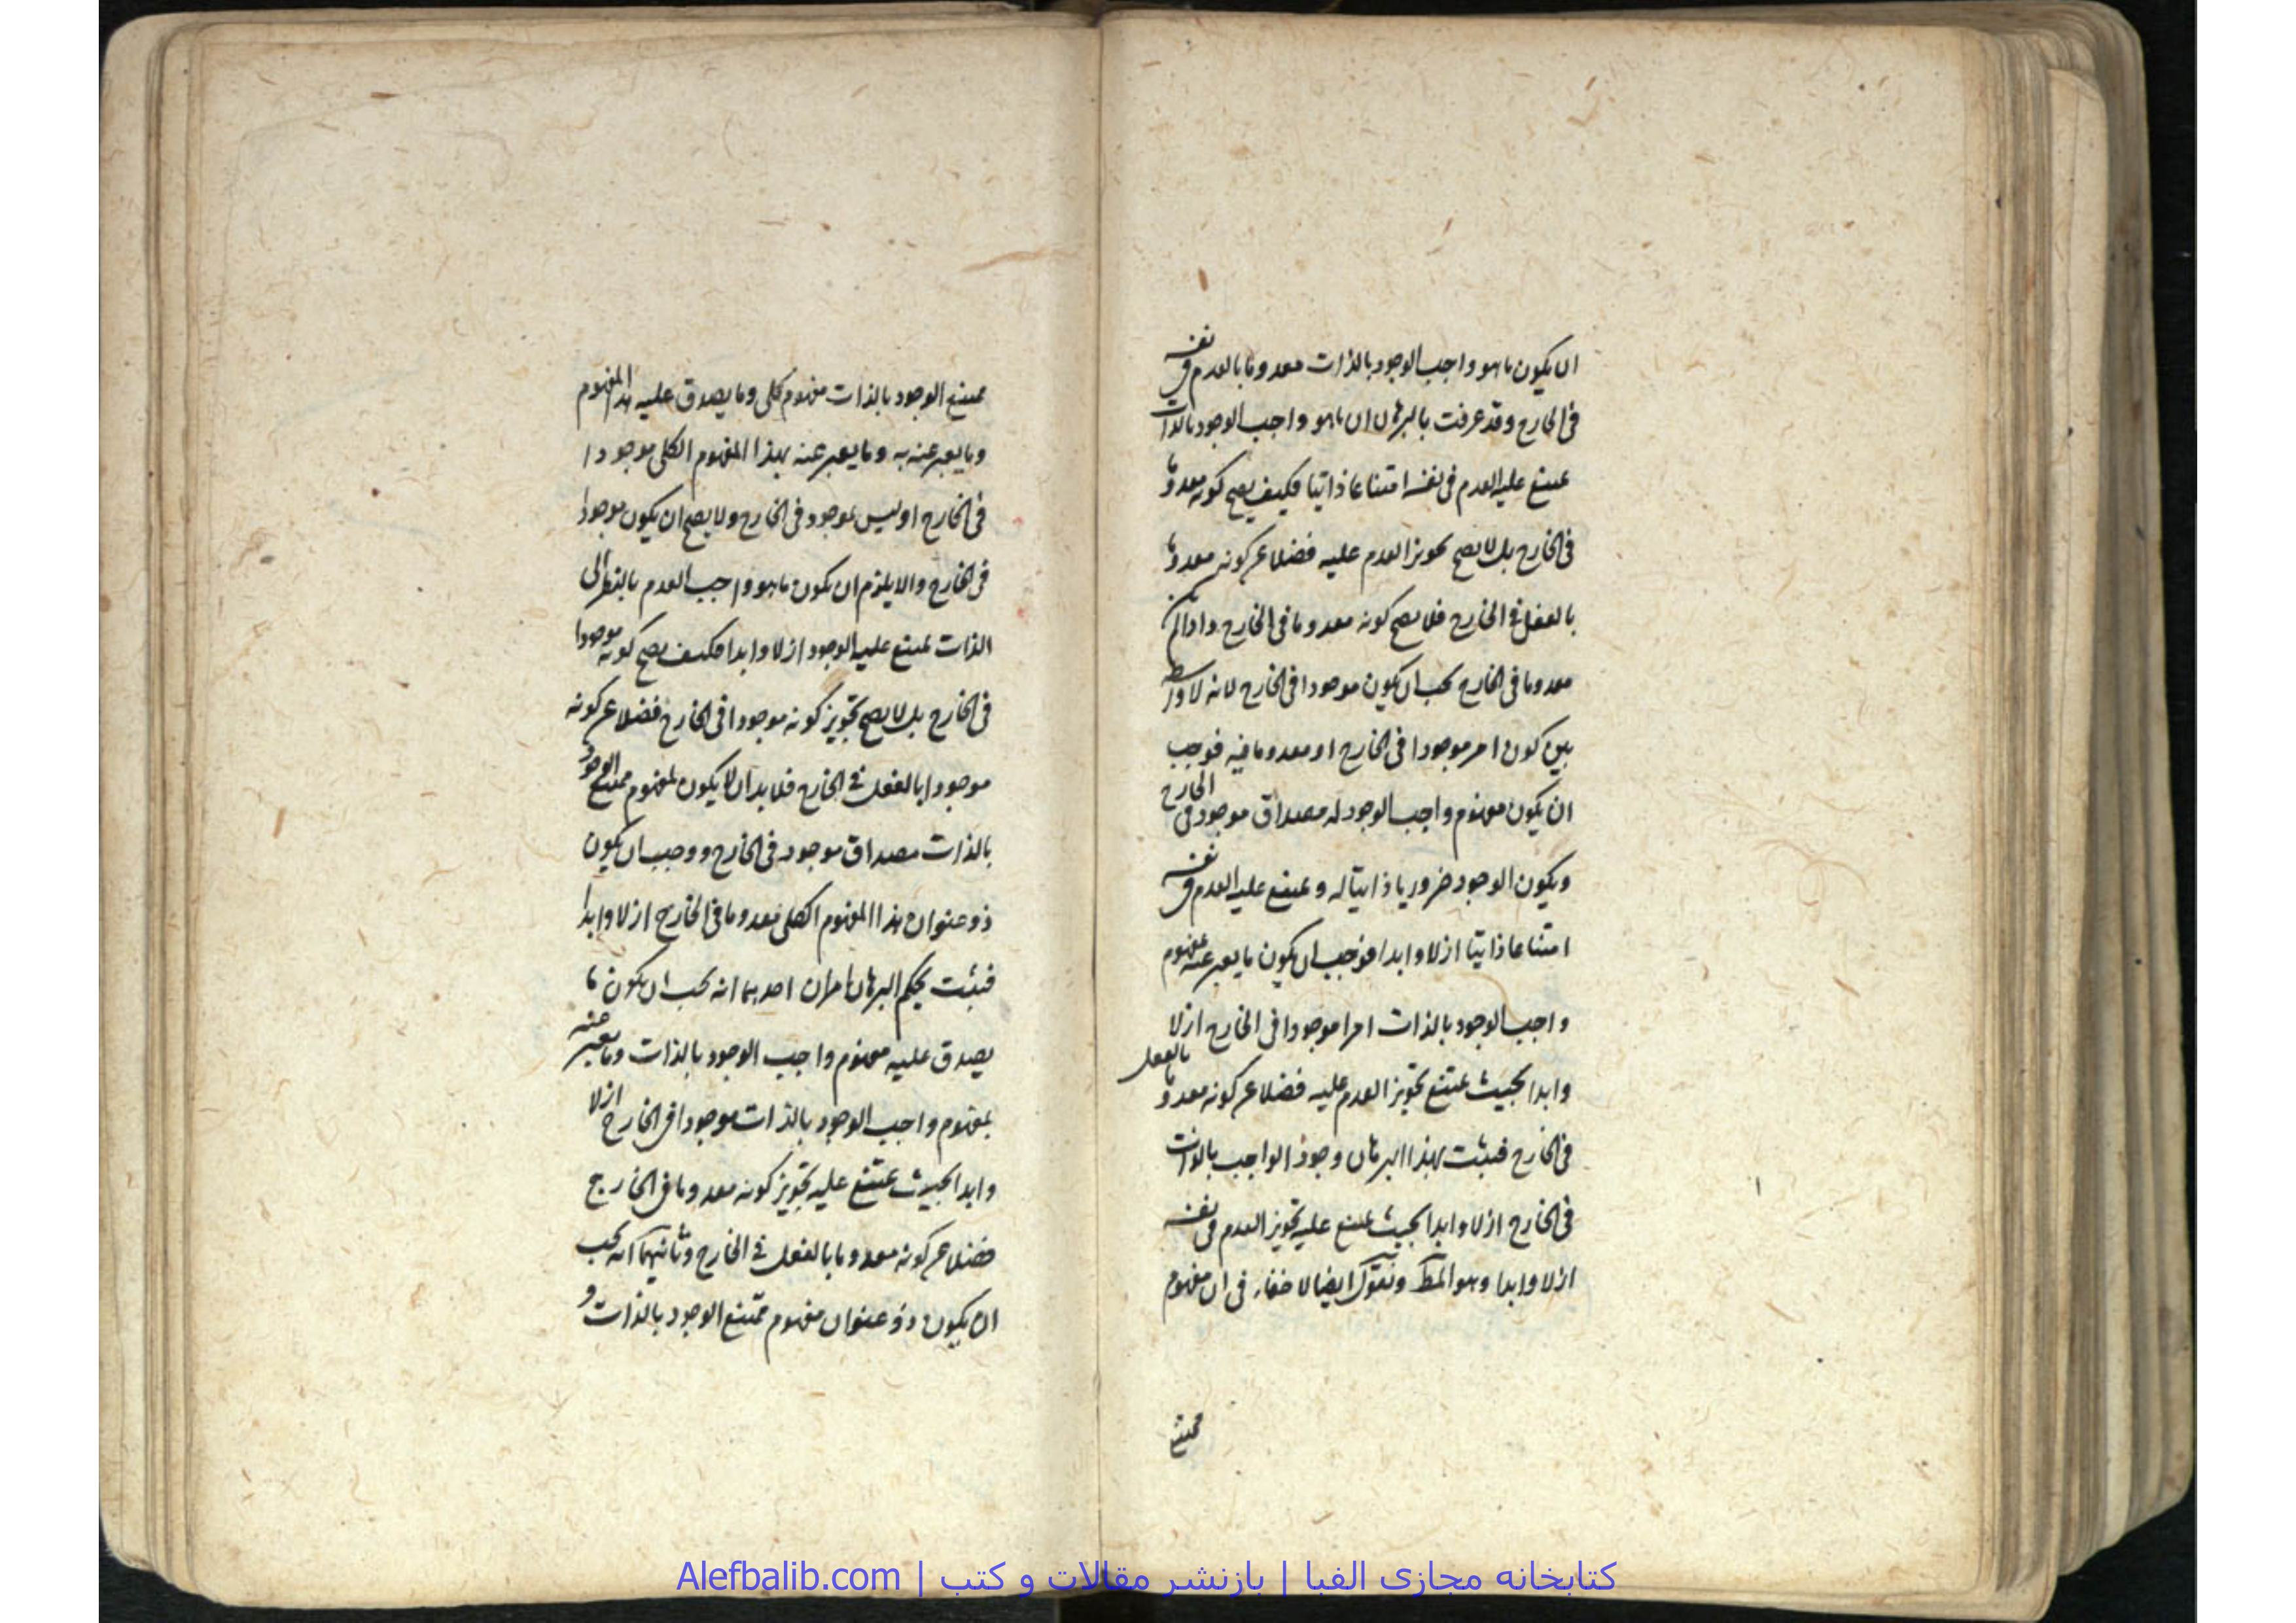 ان يكون ما هو واجب الوجود بالذات معدوما بالعدم فى نفسه
فى الخارج وقد عرفت بالبرهان ان ما هو واجب الوجود بالذات
يمتنع عليه العدم فى نفسه امتناعا ذاتيا فكيف يصح كونه معدوما
فى الخارج بل لا يصح تجويز العدم عليه فضلا عن كونه معدوما
بالفعل فى الخارج فلا يصح كونه معدوما فى الخارج واذا لم يكن
معدوما فى الخارج يجب ان يكون موجودا فى الخارج لانه لا واسطه
بين كون امر موجودا فى الخارج او معدوما فيه فوجب
ان يكون مفهوم واجب الوجود له مصداق موجود فى الخارج
ويكون الوجود ضروريا ذاتيا له ويمتنع عليه العدم فى نفسه
امتناعا ذاتيا ازلا وابدا فوجب ان يكون ما يعبر عنه بمفهوم
واجب الوجود بالذات امرا موجودا فى الخارج ازلا
وابدا بحيث يمتنع تجويز العدم عليه فضلا عن كونه معدوما بالفعل
فى الخارج فثبت بهذا البرهان وجود الواجب بالذات
فى الخارج ازلا وابدا بحيث يمتنع عليه تجويز العدم فى نفسه
ازلا وابدا وهو المط ونقول ايضا لا خفاء فى ان مفهوم
ممتنع
ممتنع الوجود بالذات مفهوم كلى وما يصدق عليه هذا المفهوم
وما يعبر عنه به وما يعبر عنه بهذا المفهوم الكلى موجودا
فى الخارج او ليس بموجود فى الخارج ولا يصح ان يكون موجودا
فى الخارج والا يلزم ان يكون ما هو واجب العدم بالنظر الى
الذات يمتنع عليه الوجود ازلا وابدا فكيف يصح كونه موجودا
فى الخارج بل لا يصح تجويز كونه موجودا فى الخارج فضلا عن كونه
موجودا بالفعل فى الخارج فلا بد ان لا يكون لمفهوم ممتنع الوجود
بالذات مصداق موجود فى الخارج ووجب ان يكون
ذو عنوان هذا المفهوم الكلى معدوما فى الخارج ازلا وابدا
فثبت بحكم البرهان امران احدهما انه يجب ان يكون ما
يصدق عليه مفهوم واجب الوجود بالذات وما يعبر عنه
بمفهوم واجب الوجود بالذات موجودا فى الخارج ازلا
وابدا بحيث يمتنع عليه تجويز كونه معدوما فى الخارج
فضلا عن كونه معدوما بالفعل فى الخارج وثانيهما انه يجب
ان يكون ذو عنوان مفهوم ممتنع الوجود بالذات و
کتابخانه مجازی الفبا | بازنشر مقالات و کتب | Alefbalib.com